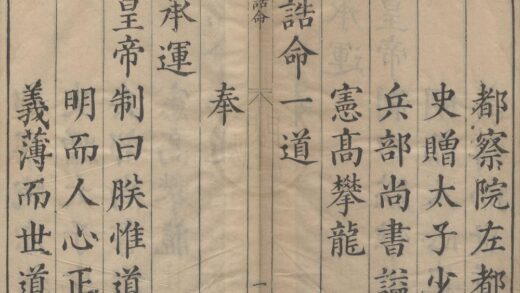 都察院左都
史贈太子少
兵部尚書謚
憲髙攀龍
誥命一道
誥命
一
奉
承運
皇帝制曰朕惟道
明而人心正
義薄而世道